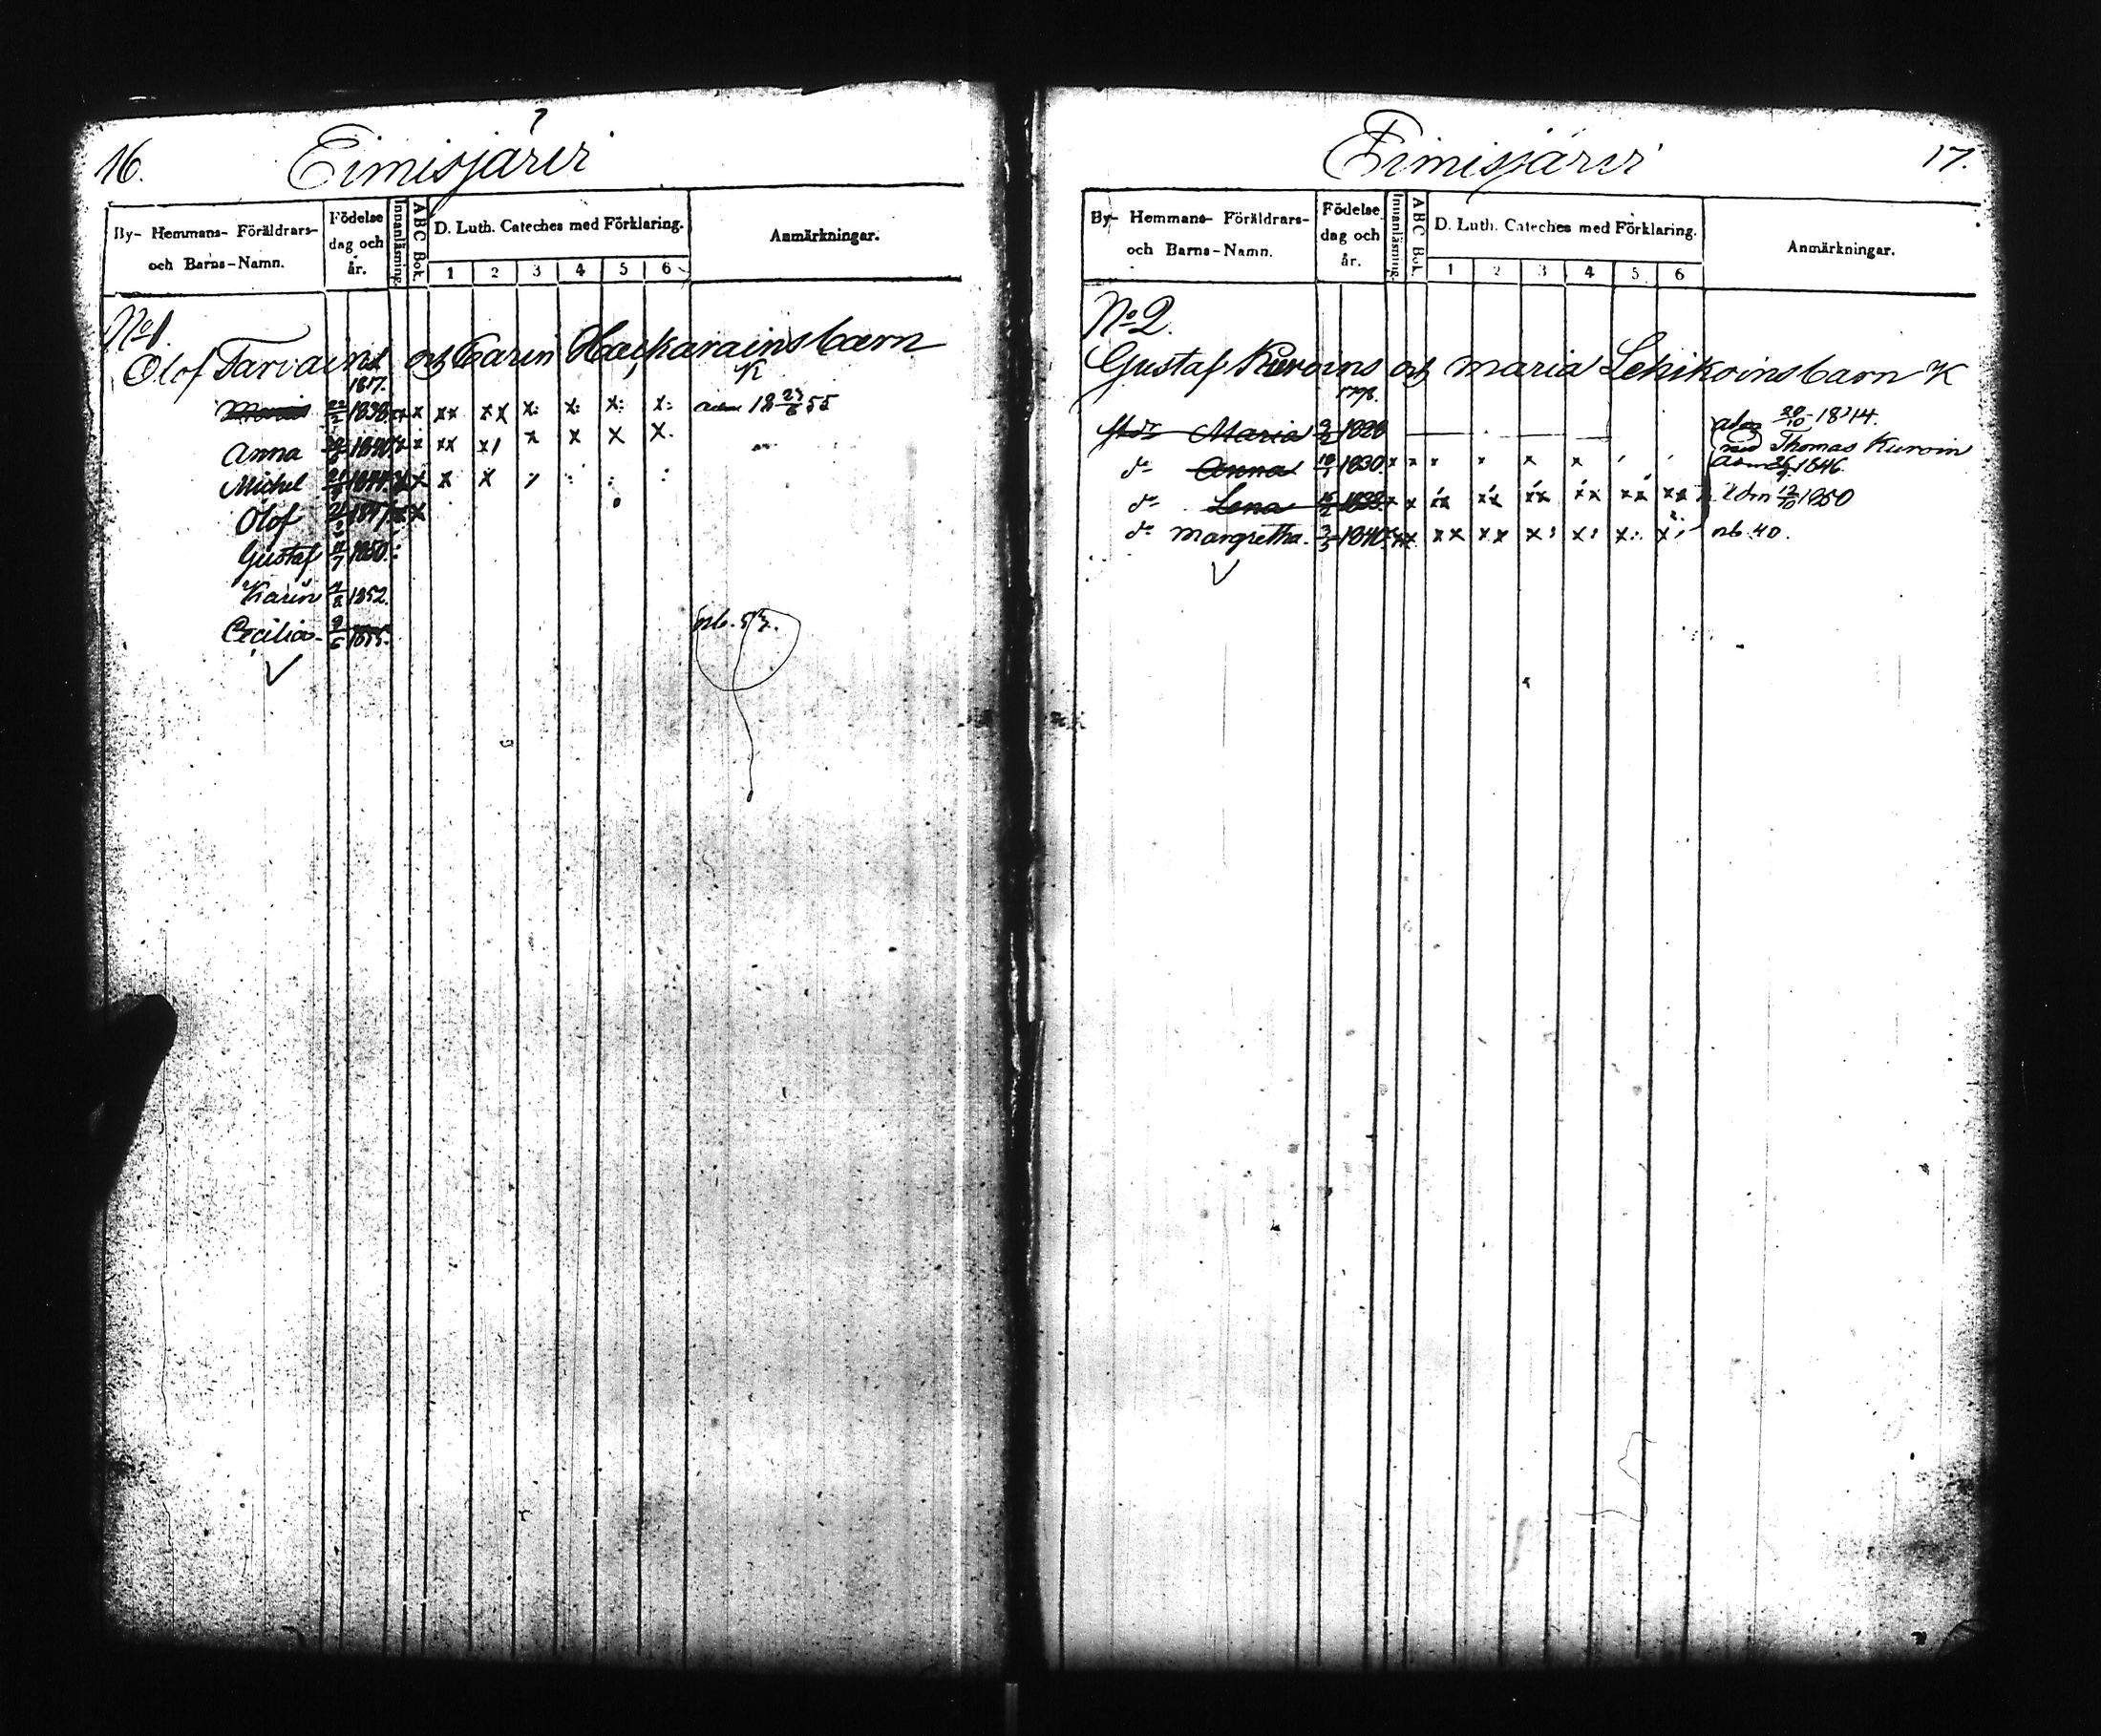 16.
Eimisjärvi
By- Hemmans- Föräldrars-
och Barns-Namn.
Födelse
dag och
år.
Innanläsning.
ABC Bok.
D. Luth. Cateches med Förklaring.
1 2 3 4 5 6
Anmärkningar.
No 1.
Olof Tarvainens och Carin Haikarainsbarn
1817. K
Maria 22/2 1838. xx x xx xx x: x: x: x: adm 18 23/6 55
Anna 1840 x x xx x x x x
Michel 1844 x x x x
Olof 1847 x x
Gustaf 11/7 1850.
Karin 1852.
Cecilia 9/6 1855. nb. 53.
Eimisjärvi
17.
By- Hemmans- Föräldrars-
och Barns-Namn.
Födelse
dag och
år.
Innanläsning.
ABC Bok.
D. Luth. Cateches med Förklaring.
1 2 3 4 5 6
Anmärkningar.
No 2.
Gustaf Kuroins och Maria Lehikoinsbarn K
1798.
Maria 1828 20/10 1844.
Thomas Kuroin
do Anna 1830. x x x x x x 1846.
do Lena 1838. x x xx xx xx xx xx xx adm 1850
do Margretha. 3/5 1840. xx xx xx x: x: x: x: nb. 40.